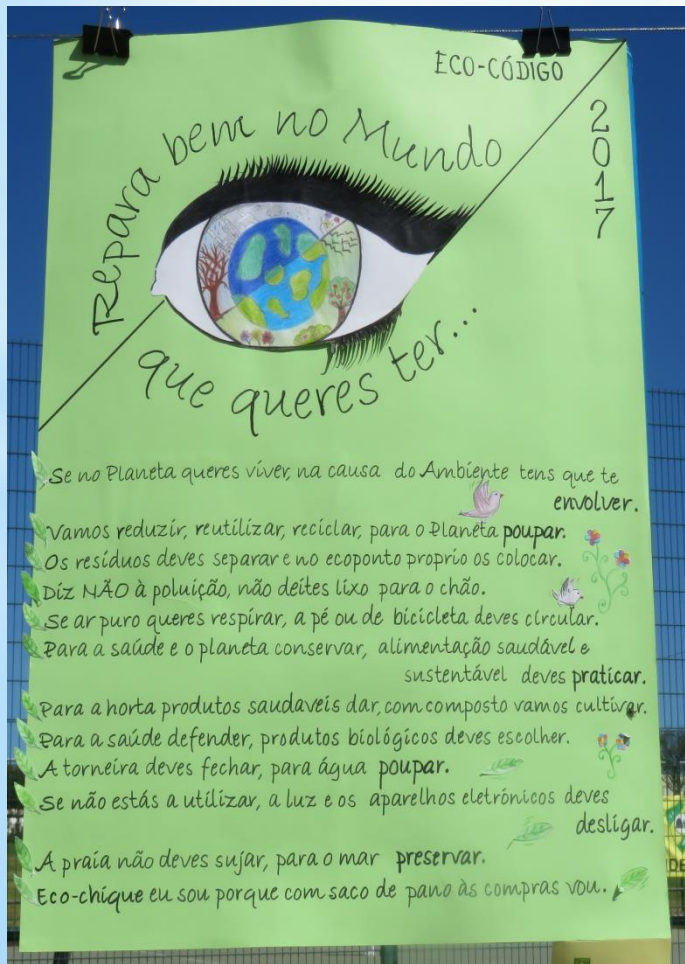 ECO-CÓDIGO
2017
Repara bem no Mundo
que queres ter...
Se no Planeta queres viver, na causa do Ambiente tens que te
envolver.
Vamos reduzir, reutilizar, reciclar, para o Planeta poupar.
Os resíduos deves separar e no ecoponto proprio os colocar.
Diz NÃO à poluição, não deites lixo para o chão.
Se ar puro queres respirar, a pé ou de bicicleta deves circular.
Para a saúde e o planeta conservar, alimentação saudável e
sustentável deves praticar.
Para a horta produtos saudaveis dar, com composto vamos cultivar.
Para a saúde defender, produtos biológicos deves escolher.
A torneira deves fechar, para água poupar.
Se não estás a utilizar, a luz e os aparelhos eletrónicos deves
desligar.
A praia não deves sujar, para o mar preservar.
Eco-chique eu sou porque com saco de pano às compras vou.